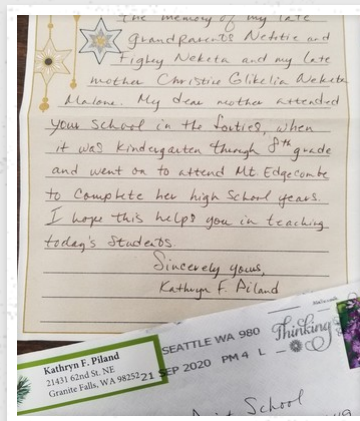 The memory of my late
Grandparents Neditie and
Eighey Neketa and my late
mother Christine Glikelia Neketa
Malone. My dear mother attended
your school in the forties, when
it was kindergarten through 8th grade
and went on to attend Mt Edgecombe
to complete her high school years.
I hope this helps you in teaching
today's students.
Sincerely yours,
Kathryn F. Piland
SEATTLE WA 980
21 SEP 2020 PM 4 L
Thinking
Kathryn F. Piland
21431 62nd St. NE
Granite Falls, WA 98252
School